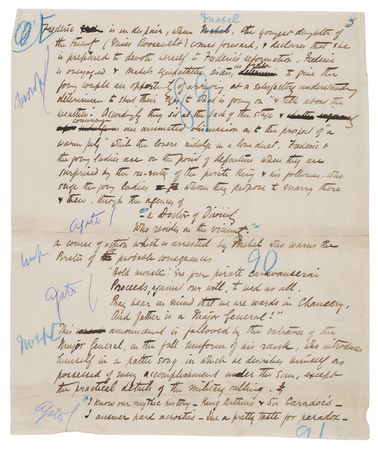 Mabel
3
Frederic is in despair, when Mabel, the youngest daughter of
the troupe (Miss Roosevelt) comes forward, & declares that she
is prepared to devote herself to Frederic's reformation. Frederic
is overjoyed & Mabel's sympathetic sisters, in order to give the
young couple an opportunity
determine to shut their eyes to what is going on & "talk about the
weather". Accordingly they sit at the back of the stage &
commence an animated discussion as to the prospect of a
warm July while the lovers indulge in a love duet. Frederic &
the young ladies are on the point of departure when they are
surprised by the re-entry of the pirate king & his followers, who
seize the young ladies whom they propose to marry there
& then, through the agency of
"a Doctor of Divinity
Who resides in the vicinity"
a course of action which is arrested by Mabel who warns the
Pirates of the probable consequences
90
"Hold monsters! Ere your pirate caravanserai
Proceeds, against our will, to wed us all,
Pray bear in mind that we are wards in Chancery,
And father is a Major General!"
This announcement is followed by the entrance of the
Major General, in the full uniform of his rank, who introduces
himself in a patter song in which he describes himself as
possessed of every accomplishment under the Sun, except
the practical details of the military calling.
"I know our mythic history - King Arthur's & Sir Caradoc's -
I answer hard acrostics - I've a pretty taste for paradox -
91